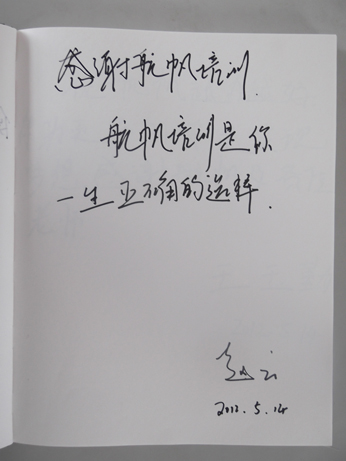 感谢航帆培训.
航帆培训是你
一生正确的选择.
赵云
5.14